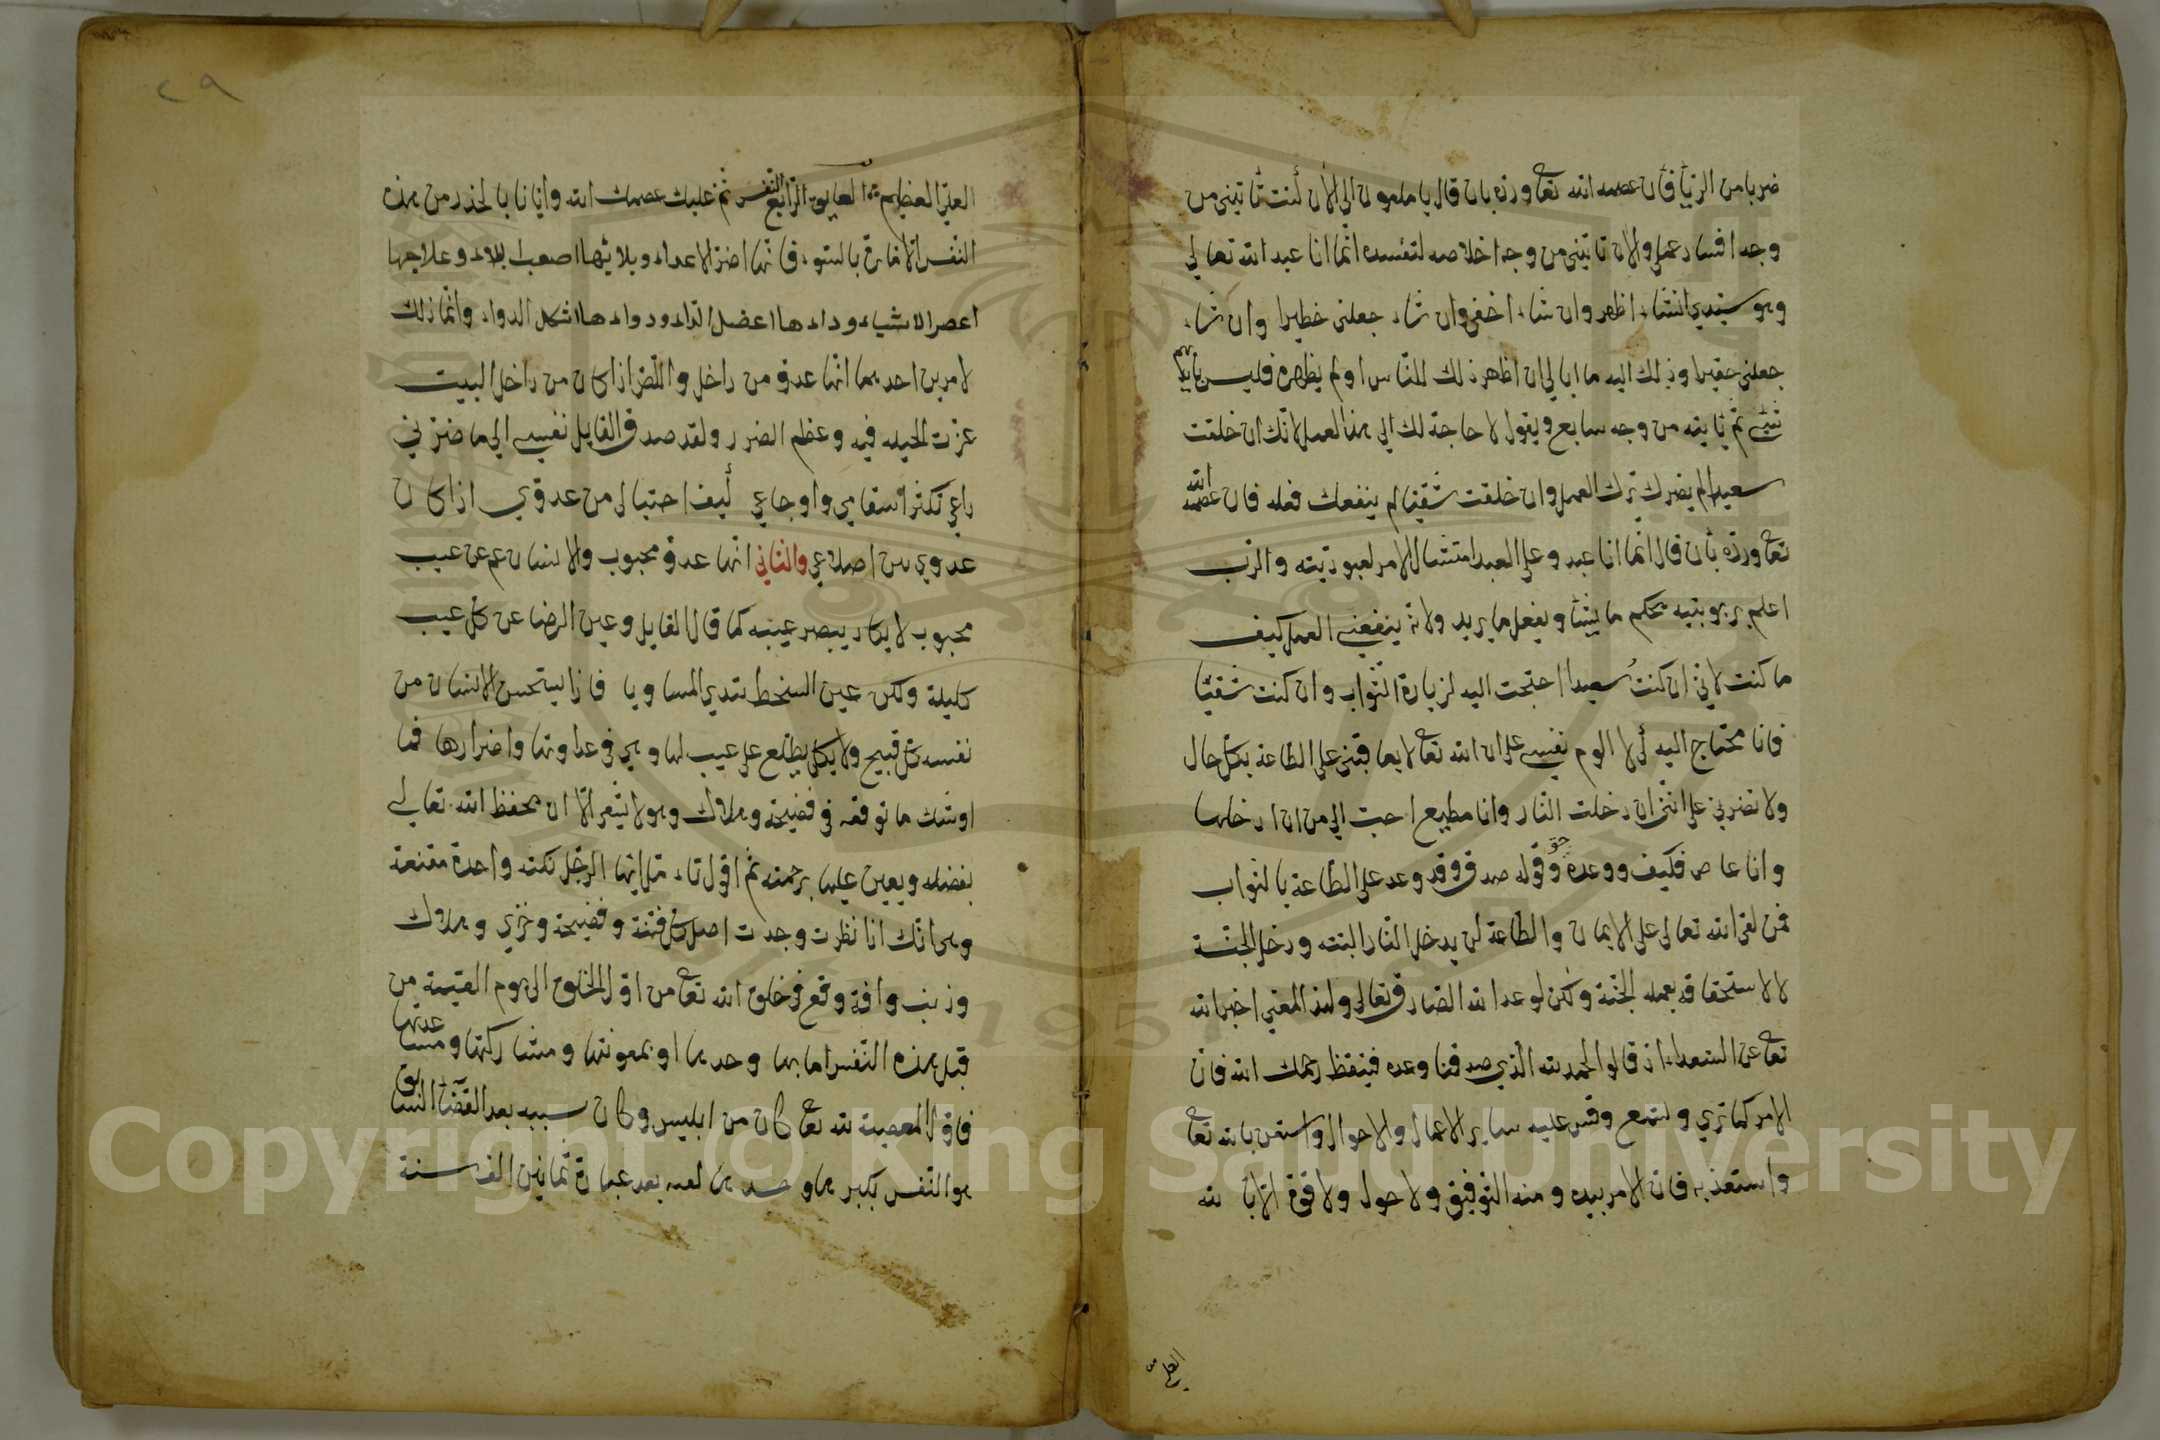 ضربا من الريا فان عصمه الله تعا ورده بان قال يا ملعون الى الان كنت تاتيني من
وجه افساد عملي والان تاتيني من وجه اخلاصه لتفسده انما انا عبد الله تعالي
وهو سيدي انشاء اظهر وان شاء اخفى وان شاء جعلني خطيرا وان شاء
جعلني حقيرا وذلك اليه ما ابالي ان اظهر ذلك للناس او لم يظهره فليس بايديهم
شئ ثم ياتيه من وجه سابع ويقول لا حاجة لك الي هذا العمل لانك ان خلقت
سعيدا لم يضرك ترك العمل وان خلقت شقيا لم ينفعك فعله فان عصمه الله
تعا ورده بان قال انما انا عبد وعلى العبد امتثال الامر لعبوديته والرب
اعلم بربوبتيه يحكم ما يشا ويفعل ما يريد ولانه ينفعني العمل كيف
ما كنت لاني ان كنت سعيدا احتجت اليه لزيادة الثواب وان كنت شقيا
فانا محتاج اليه لئلا الوم نفسي على ان الله تعا لا يعاقبني على الطاعة بكل حال
ولا تضرني على انني ان دخلت النار وانا مطيع احب الي من ان ادخلها
وانا عاص فكيف ووعده حق وقوله صدق وقد وعد على الطاعة بالثواب
فمن لقى الله تعالى على الايمان والطاعة لن يدخل النار البته ودخل الجنة
لا لاستحقاقه بعمله الجنة ولكن لوعد الله الصادق تعالى ولهذا المعني اخبر الله
تعا عن السعداء اذ قالوا الحمد لله الذي صدقنا وعده فتيقظ رحمك الله فان
الامر كما تري وتسمع وقس عليه ساير الاعمال والاحوال واستعن بالله تعا
واستعذ به فان الامر بيده ومنه التوفيق ولا حول ولا قوة الا بالله
العلي
٢٩
العلي العظيم العايق الرابع النفس ثم عليك عصمك الله وايانا بالحذر من هذه
النفس الامارة بالسوء فانها اضر الاعداء وبلائها اصعب البلاء وعلاجها
اعسر الاشياء وداءها اعضل الداء ودواءها اشكل الدواء وانما ذلك
لامرين احدهما انها عدو من داخل واللص اذا كان من داخل البيت
عزت الحيله فيه وعظم الضرر ولقد صدق القايل نفسي الي ما ضرني
داعي تكثر اسقامي واوجاعي كيف احتيالي من عدوي اذا كان
عدوي بين اضلاعي والثاني انها عدو محبوب والانسان عم عن عيب
محبوبه لا يكاد يبصر عيبه كما قال القايل وعين الرضا عن كل عيب
كليلة ولكن عين السخط تبدي المساويا فاذا يستحسن الانسان من
نفسه كل قبيح ولا يكاد يطلع على عيب لها وهي في عداوتها واضرارها فما
اوشك ما توقعه في فضيحة وهلاك وهو لا يشعر الا ان يحفظ الله تعالي
بفضله ويعين عليها برحمته ثم اقول تامل ايها الرجل نكتة واحدة مقنعة
وهى انك اذا نظرت وجدت اصل كل فتنة وفضيحة وخزي وهلاك
وذنب وافة وقع في خلق الله تعا من اول الخلق الى يوم القيمة من
قبل هذه النفس اما بها وحدها او بمعونتها ومشاركتها ومساعدتها
فاول المعصية لله تعا كان من ابليس وكان سببه بعد القضا السابق
هو النفس بكبرها وحسدها لعبه بعد عبادة ثمانين الف سنة